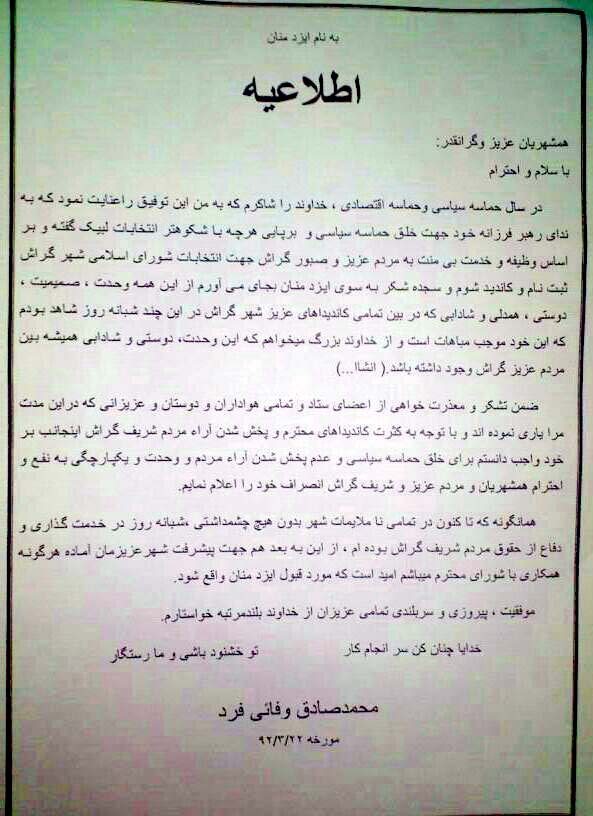 به نام ایزد منان
اطلاعیه
همشهریان عزیز وگرانقدر:
با سلام و احترام
در سال حماسه سیاسی وحماسه اقتصادی ، خداوند را شاکرم که به من این توفیق راعنایت نمود که به
ندای رهبر فرزانه خود جهت خلق حماسه سیاسی و برپایی هرچه با شکوهتر انتخابات لبیک گفته و بر
اساس وظیفه و خدمت بی منت به مردم عزیز و صبور گراش جهت انتخابات شورای اسلامی شهر گراش
ثبت نام و کاندید شوم و سجده شکر به سوی ایزد منان بجای می آورم از این همه وحدت ، صمیمیت ،
دوستی ، همدلی و شادابی که در بین تمامی کاندیداهای عزیز شهر گراش در این چند شبانه روز شاهد بودم
که این خود موجب مباهات است و از خداوند بزرگ میخواهم که این وحدت، دوستی و شادابی همیشه بین
مردم عزیز گراش وجود داشته باشد.( انشاا...)
ضمن تشکر و معذرت خواهی از اعضای ستاد و تمامی هواداران و دوستان و عزیزانی که دراین مدت
مرا یاری نموده اند و با توجه به کثرت کاندیداهای محترم و پخش شدن آراء مردم شریف گراش اینجانب بر
خود واجب دانستم برای خلق حماسه سیاسی و عدم پخش شدن آراء مردم و وحدت و یکپارچگی به نفع و
احترام همشهریان و مردم عزیز و شریف گراش انصراف خود را اعلام نمایم.
همانگونه که تا کنون در تمامی نا ملایمات شهر بدون هیچ چشمداشتی ،شبانه روز در خدمت گذاری و
دفاع از حقوق مردم شریف گراش بوده ام ، از این به بعد هم جهت پیشرفت شهرعزیزمان آماده هرگونه
همکاری با شورای محترم میباشم امید است که مورد قبول ایزد منان واقع شود.
موفقیت ، پیروزی و سربلندی تمامی عزیزان از خداوند بلندمرتبه خواستارم.
خدایا چنان کن سر انجام کار تو خشنود باشی و ما رستگار
محمدصادق وفائی فرد
مورخه ۹۲/۳/۲۲